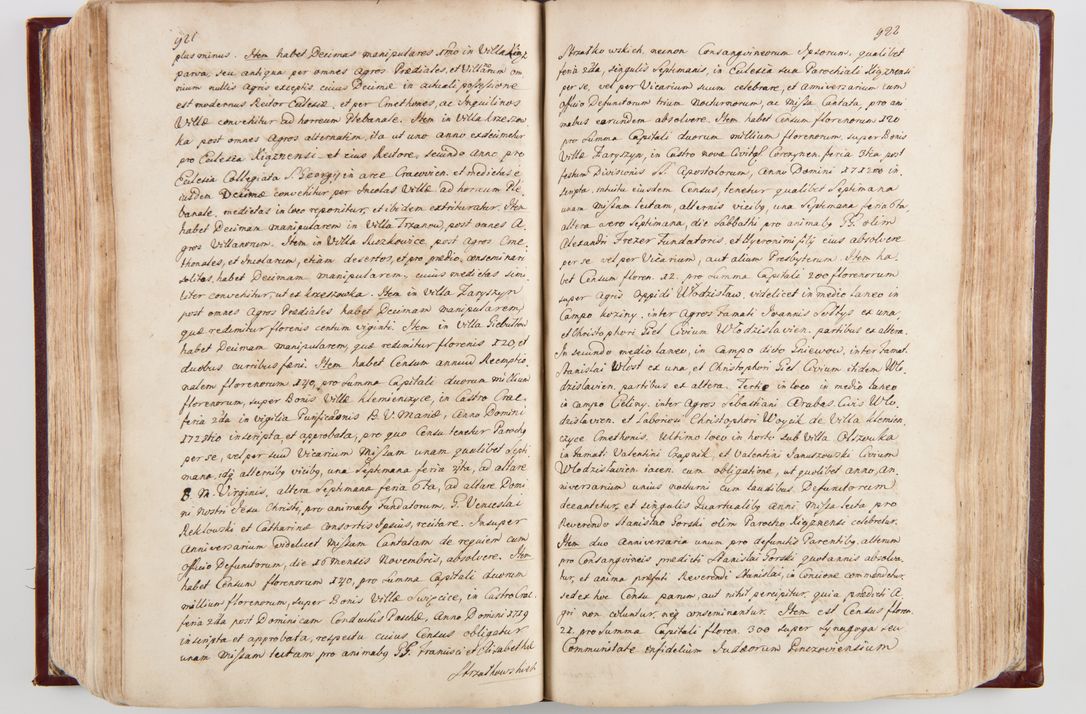 921
plus minus. Item habet Decimas manipulares 1mo in Villa Xingz
parva, seu antiqua per omnes Agros Prædiales, et Villanum om
nium nullis agris exceptis cuius Decimæ in actuali possessione
est modernus Rector Ecclesiæ, et per Cmethones, ac Inquilinos
Villæ convehitur ad horreum Plebanale. Item in Villa Krzeszow
ka post omnes Agros alternatim, ita ut uno anno exdecimetur
pro Ecclesia Xigznensi et eius Rectore, secundo anno pro
Ecclesia Collegiata S. Georgij in arce Cracovien. et medietas e
iusdem Decimæ convehitur per Incolas Villæ ad horreum Ple
banale, medietas in loco reponitur, et ibidem extrituratur. Item
habet Decimam manipularem in Villa Trzanow, post omnes A
gros Villanorum. Item in Villa Suszkowice, post Agros Cme
thonales, et Incolarum, etiam desertos, et pro prædio, conseminari
solitos, habet Decimam manipularem, cuius medietas simi
liter convehitur, ut ex Krzeszowka. Item in Villa Zaryszyn
post omnes Agros Prædiales habet Decimam manipularem,
quæ redimitur florenis centum viginti. Item in Villa Giebultow
habet Decimam manipularem, quæ redimitur florenis 120, et
duobus curribus fæni. Item habet Censum annuum Reemptio
nalem florenorum 140, pro summa Capitali duorum millium
florenorum, super Bonis Villæ Klemienczyce, in Castro Crac.
feria 2da in vigilia Purificaonis B. V. Mariæ, Anno Domini
1728tio inscripta, et approbata, pro quo Censu tenetur Parochq
per se, vel per suum Vicarium Missam unam qualibet Septi
mana, idq alternibq vicibq, una Septimana feria 4ta, ad altare
B. M. Virginis, altera Septimana feria 6ta, ad altare Domi
ni Nostri Jesu Christi, pro animabq Fundatorum, G. Venceslai
Reklowski et Catharinæ consortis ipsius, recitare. Insuper
Anniversarium videlicet Missam Cantatam de requiem cum
officio Defunctorum, die 10 mensis Novembris, absolvere. Item
habet Censum florenorum 140, pro summa Capitali duorum
millium florenorum, super Bonis Villæ Swięcice, in Castro Crac.
feria 2da post Dominicam Conductus Paschæ, Anno Domini 1719
inscripta et approbata, respectu cuius Census obligatur
unam Missam lectam pro animabq GG. Francisci et Elisabethæ
Strzałkowskich
922
Strzałkowskich, necnon Consangvineorum Ipsorum, qualibet
feria 2da, singulis Septimanis, in Ecclesia sua Parochiali Xigznensi
per se, vel per Vicarium suum celebrare, et Anniversarium cum
officio Defunctorum trium Nocturnorum, ac Missa Cantata, pro ani
mabus earundem absolvere. Item habet Censum florenorum 120
pro summa Capitali duorum millium florenorum, super Bonis
Villæ Zaryszyn, in Castro novæ Civitatis Corcynen. feria 3tia post
festum Divisionis SS. Apostolorum, Anno Domini in
scripta, intuitu eiusdem Census, tenetur qualibet Septimana
unam Missam lectam, alternis vicibq, una Septimana feria 6ta,
altera vero Septimana, die Sabbathi pro animabq GG. olim
Alexandri Frezer Fundatoris, et Hyeronimi filij eius absolvere
per se vel per Vicarium, aut alium Presbyterum. Item ha
bet Censum floren. 12. pro summa Capitali 200 florenorum
super Agris oppidi Włodzisław, videlicet in medio laneo in
Campo koziny, inter Agros famati Joannis Sołtys ex una,
et Christophori Giel Civium Włodzislavien. partibus ex altera.
In secundo medio laneo, in Campo dicto Gniewow, inter famat.
Stanislai Włost ex una, et Christophori Giel Civium itidem Wło
dzislavien. partibus ex altera. Tertio in loco in medio laneo
in Campo Cieliny, inter Agros Sebastiani Arabas Civis Wło
dzislavien. et laboriosi Christophori Woycik de Villa Klemien
czyce Cmethonis. Ultimo loco in horti sub Villa Olszowka
inter famat. Valentini Czapnik, et Valentini Januszowski Civium
Włodzislavien. iacen. cum obligatione, ut quolibet anno, An
niversarium unius nocturni cum laudibus Defunctorum
decantetur, et singulis Quartualibq anni Missa lecta pro
Reverendo Stanislao Gorski olim Parocho Xigznensi celebretur.
Item duo Anniversaria unum pro defunctis Parentibq, alterum
pro Consangvineis prædicti Stanislai Gorski quotannis absolva
tur, et anima præfati Reverendi Stanislai, in Concione commendetur,
sed ex hoc Censu parum, aut nihil percipitur, quia prædicti A
gri non coluntur, neq conseminantur. Item est Census floren.
21. pro summa Capitali floren. 300 super Synagoga seu
Communitate infidelium Judæorum Pinczoviensium